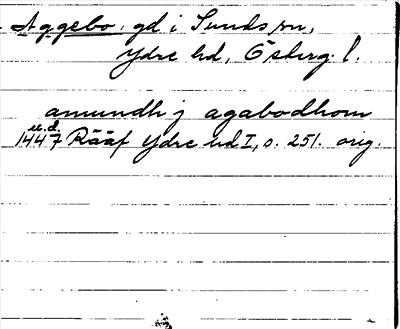 Aggebo, gd i Sunds sn,
Ydre hd, Österg. l.
amundh j agabodhom
u.d.
1447 Rääf Ydre hd I, s. 251. orig.